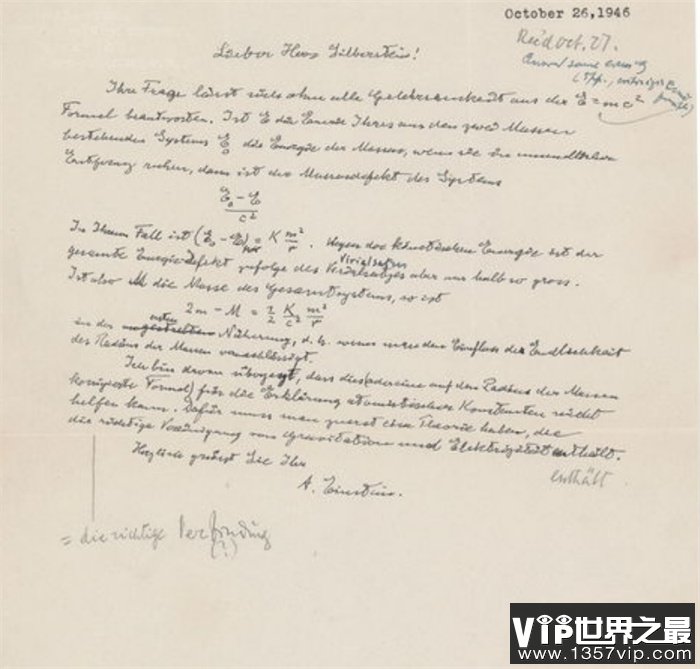 October 26, 1946
Rec'd Oct. 27.
Lieber Herr Silberstein!
Ihre Frage lässt sich ohne alle Gelehrsamkeit aus der E = mc²
Formel beantworten. Ist E die Energie Ihres aus den zwei Massen
bestehenden Systems E₀ die Energie der Massen, wenn sie in unendlicher
Entfernung ruhen, dann ist der Massendefekt des Systems
E₀ – E
c²
In Ihrem Fall ist (E₀ – E) = K m²/r. Wegen der kinetischen Energie ist der
gesamte Energiedefekt zufolge des Virialsatzes aber nur halb so gross.
Virialsatzes
Ist also M die Masse des Gesamtsystems, so ist
2m – M = 1/2 K/c² m²/r
in der ersten Näherung, d. h. wenn man den Einfluss der Endlichkeit
des Radius der Massen vernachlässigt.
Ich bin davon überzeugt, dass dies (oder eine auf den Radius der Massen
korrigierte Formel) für die Erklärung atomistischer Konstanten nicht
helfen kann. Dafür muss man zuerst eine Theorie haben, die
die richtige Vereinigung von Gravitation und Elektrizität enthält.
enthält
Herzlich grüsst Sie Ihr
A. Einstein.
= die richtige Verbindung
(?)
VIP世界之最
www.1357vip.com